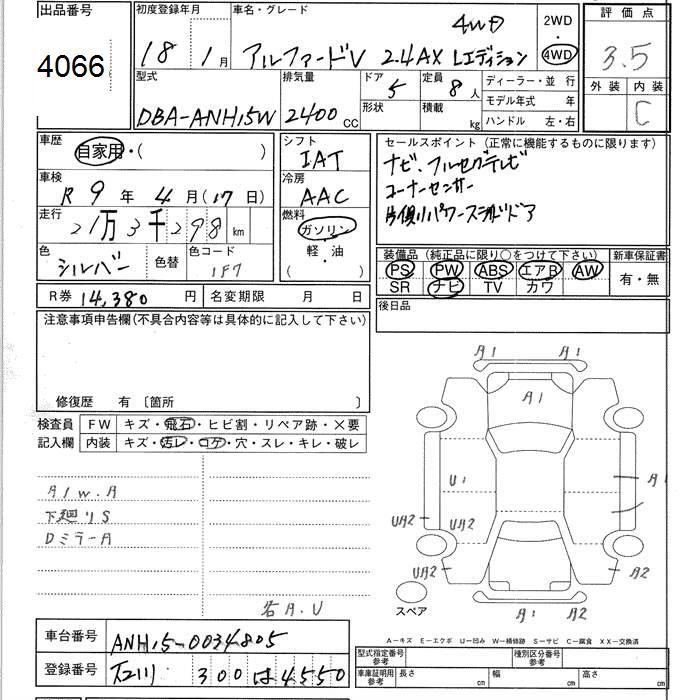 出品番号
4066
初度登録年月 車名・グレード
18 1月 アルファードV 2.4AX Lエディション 4WD
2WD
・
4WD
評価点
3.5
外装 内装
C
型式 排気量 ドア 定員 ディーラー・並行
DBA-ANH15W 2400cc 5 8人
形状 積載 kg
モデル年式 年
ハンドル 左・右
車歴
自家用・( )
車検
R 9年 4月(17日)
走行
21万3千298km
色 シルバー 色替 色コード 1F7
シフト
IAT
冷房
AAC
燃料
ガソリン
・
軽・油
( )
セールスポイント(正常に機能するものに限ります)
ナビ、フルセグテレビ
コーナーセンサー
片側パワースライドドア
装備品(純正品に限り○をつけて下さい) 新車保証書
PS PW ABS エアB AW
SR ナビ TV カワ
有・無
R券 14,380円 名変期限 月 日
後日品
注意事項申告欄(不具合内容等は具体的に記入して下さい)
修復歴 有 〔箇所 〕
検査員 FW キズ・飛石・ヒビ割・リペア跡・×要
記入欄 内装 キズ・汚レ・コゲ・穴・スレ・キレ・破レ
A1W.A
下廻りS
Dミラ-A
各A.U
A1 A1
A1
U1
A1
UA2 UA2
UA2 A2
A1 A2
スペア
A-キズ E-エクボ U-凹み W-補修跡 S-サビ C-腐食 XX-交換済
車台番号 ANH15-0034805
登録番号 石川 300 は 4550
型式指定番号 参考 種別区分番号 参考
車庫証明用 参考 長さ cm 幅 cm 高さ cm